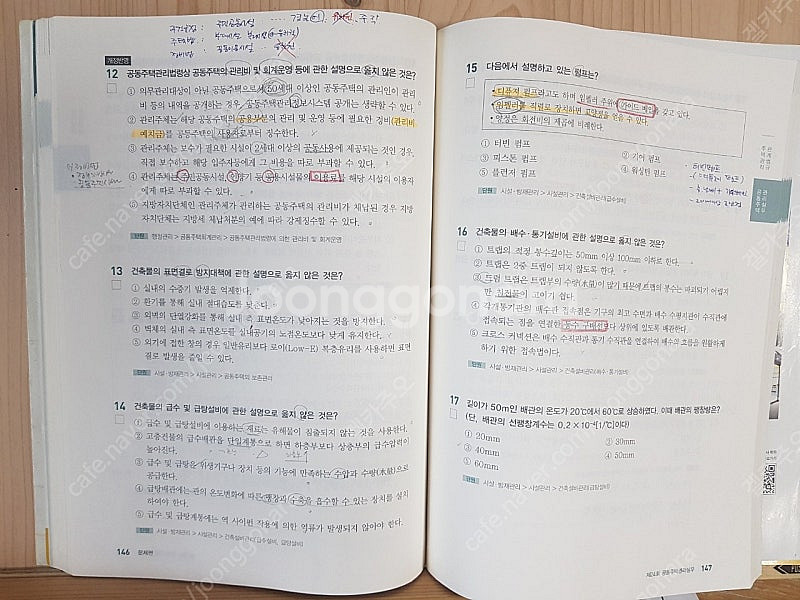 개정반영
12 공동주택관리법령상 공동주택의 관리비 및 회계운영 등에 관한 설명으로 옳지 않은 것은?
① 의무관리대상이 아닌 공동주택으로서 50세대 이상인 공동주택의 관리인이 관리
비 등의 내역을 공개하는 경우, 공동주택관리정보시스템 공개는 생략할 수 있다.
② 관리주체는 해당 공동주택의 공용부분의 관리 및 운영 등에 필요한 경비(관리비
예치금)를 공동주택의 사용자로부터 징수한다.
③ 관리주체는 보수가 필요한 시설이 2세대 이상의 공동사용에 제공되는 것인 경우,
직접 보수하고 해당 입주자등에게 그 비용을 따로 부과할 수 있다.
④ 관리주체는 주민공동시설, 인양기 등 공용시설물의 이용료를 해당 시설의 이용자
에게 따로 부과할 수 있다.
⑤ 지방자치단체인 관리주체가 관리하는 공동주택의 관리비가 체납된 경우 지방
자치단체는 지방세 체납처분의 예에 따라 강제징수할 수 있다.
단원 행정관리 > 공동주택회계관리 > 공동주택관리법령에 의한 관리비 및 회계운영
13 건축물의 표면결로 방지대책에 관한 설명으로 옳지 않은 것은?
① 실내의 수증기 발생을 억제한다.
② 환기를 통해 실내 절대습도를 낮춘다.
③ 외벽의 단열강화를 통해 실내 측 표면온도가 낮아지는 것을 방지한다.
④ 벽체의 실내 측 표면온도를 실내공기의 노점온도보다 낮게 유지한다.
⑤ 외기에 접한 창의 경우 일반유리보다 로이(Low-E) 복층유리를 사용하면 표면
결로 발생을 줄일 수 있다.
단원 시설·방재관리 > 시설관리 > 공동주택의 보존관리
14 건축물의 급수 및 급탕설비에 관한 설명으로 옳지 않은 것은?
① 급수 및 급탕설비에 이용하는 재료는 유해물이 침출되지 않는 것을 사용한다.
② 고층건물의 급수배관을 단일계통으로 하면 하층부보다 상층부의 급수압력이
높아진다.
③ 급수 및 급탕은 위생기구나 장치 등의 기능에 만족하는 수압과 수량(水量)으로
공급한다.
④ 급탕배관에는 관의 온도변화에 따른 팽창과 수축을 흡수할 수 있는 장치를 설치
하여야 한다.
⑤ 급수 및 급탕계통에는 역 사이펀 작용에 의한 역류가 발생되지 않아야 한다.
단원 시설·방재관리 > 시설관리 > 건축설비관리(급수설비, 급탕설비)
146 문제편
15 다음에서 설명하고 있는 펌프는?
• 디퓨저 펌프라고도 하며 임펠러 주위에 가이드 베인을 갖고 있다.
• 임펠러를 직렬로 장치하면 고양정을 얻을 수 있다.
• 양정은 회전비의 제곱에 비례한다.
① 터빈 펌프
② 기어 펌프
③ 피스톤 펌프
④ 워싱턴 펌프
⑤ 플런저 펌프
단원 시설·방재관리 > 시설관리 > 건축설비관리(급수설비)
16 건축물의 배수·통기설비에 관한 설명으로 옳지 않은 것은?
① 트랩의 적정 봉수깊이는 50mm 이상 100mm 이하로 한다.
② 트랩은 2중 트랩이 되지 않도록 한다.
③ 드럼 트랩은 트랩부의 수량(水量)이 많기 때문에 트랩의 봉수는 파괴되기 어렵지
만 침전물이 고이기 쉽다.
④ 각개통기관의 배수관 접속점은 기구의 최고 수면과 배수 수평지관이 수직관에
접속되는 점을 연결한 동수 구배선보다 상위에 있도록 배관한다.
⑤ 크로스 커넥션은 배수 수직관과 통기 수직관을 연결하여 배수의 흐름을 원활하게
하기 위한 접속법이다.
단원 시설·방재관리 > 시설관리 > 건축설비관리(배수·통기설비)
17 길이가 50m인 배관의 온도가 20℃에서 60℃로 상승하였다. 이때 배관의 팽창량은?
(단, 배관의 선팽창계수는 0.2×10⁻⁴[1/℃]이다)
① 20mm
② 30mm
③ 40mm
④ 50mm
⑤ 60mm
단원 시설·방재관리 > 시설관리 > 건축설비관리(급탕설비)
제24회 공동주택관리실무 147